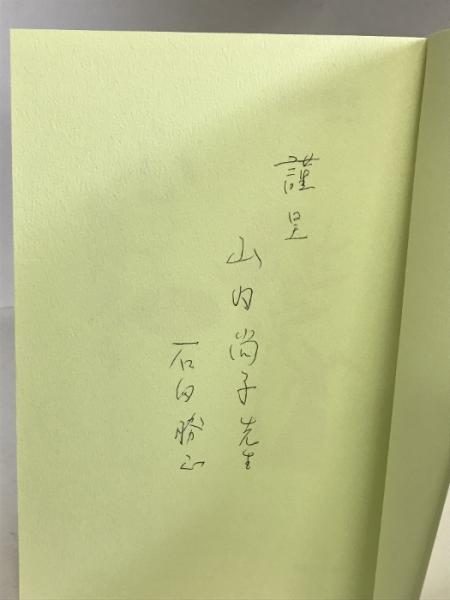 謹呈
山内尚子先生
石田勝正